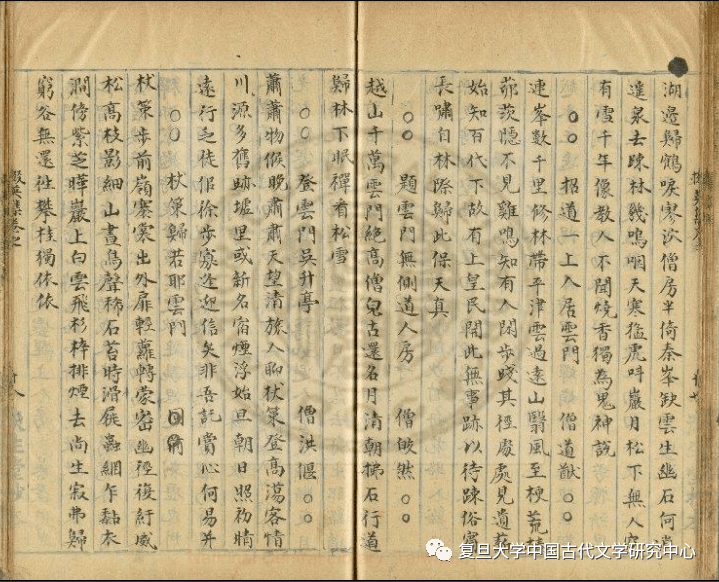 湖邉歸鶴唳寥泬僧房半倚秦峯缺雲生幽石何
進泉去踈林幾嗚咽天寒猛虎呌巖月松下無人空
有雪千年像教人不聞燒香獨為鬼神說
○○招道一上人居雲門 僧道猷○○
連峯數千里修林帶平津雲過遠山翳風至梗荒榛
茆茨隱不見雞鳴知有人閑步踐其徑處處見遺薪
始知百代下故有上皇民開此無事跡以待踈俗賓
長嘯自林際歸此保天真
○○題雲門無側道人房 僧皎然○○
越山千萬雲門絶高僧皃古還名月清朝掃石行道
歸林下眠禪看松雪
○○登雲門吳升亭 僧洪偃○○
蕭蕭物候晚肅肅天望清旅人聊杖策登高蕩客情
川源多舊跡墟里或新名宿煙浮始旦朝日照初晴
遠行乏徒侶徐步寡逢迎信矣非吾託賞心何易并
○○杖策歸若耶雲門 同前
杖策步前嶺褰裳出外扉輕蘿轉蒙密幽徑復紆威
松高枝影細山晝鳥聲稀石苔時滑屐蟲網乍黏衣
澗傍紫芝曄巖上白雲飛杉梓排煙去尚生寂弗歸
窮谷無還往攀桂獨依依
復旦大学中国古代文学研究中心